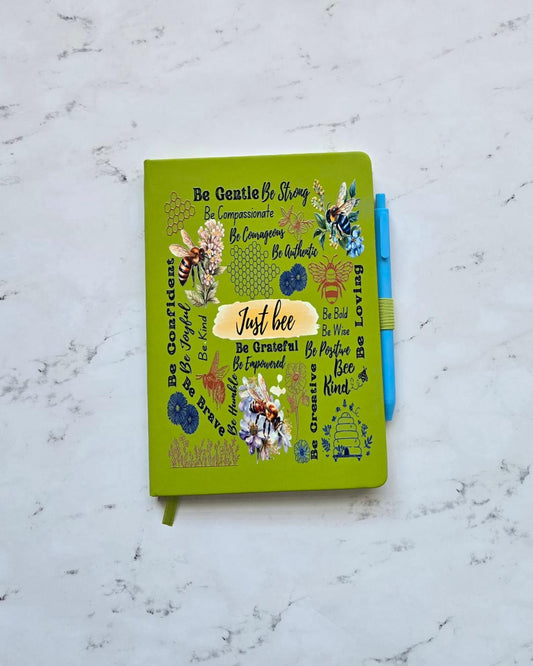 Be Gentle Be Strong
Be Compassionate
Be Courageous
Be Authentic
Be Confident
Be Joyful
Be Kind
Just bee
Be Loving
Be Bold
Be Wise
Be Grateful
Be Positive
Be Empowered
Bee
Kind
Be Brave
Be Humble
Be Creative